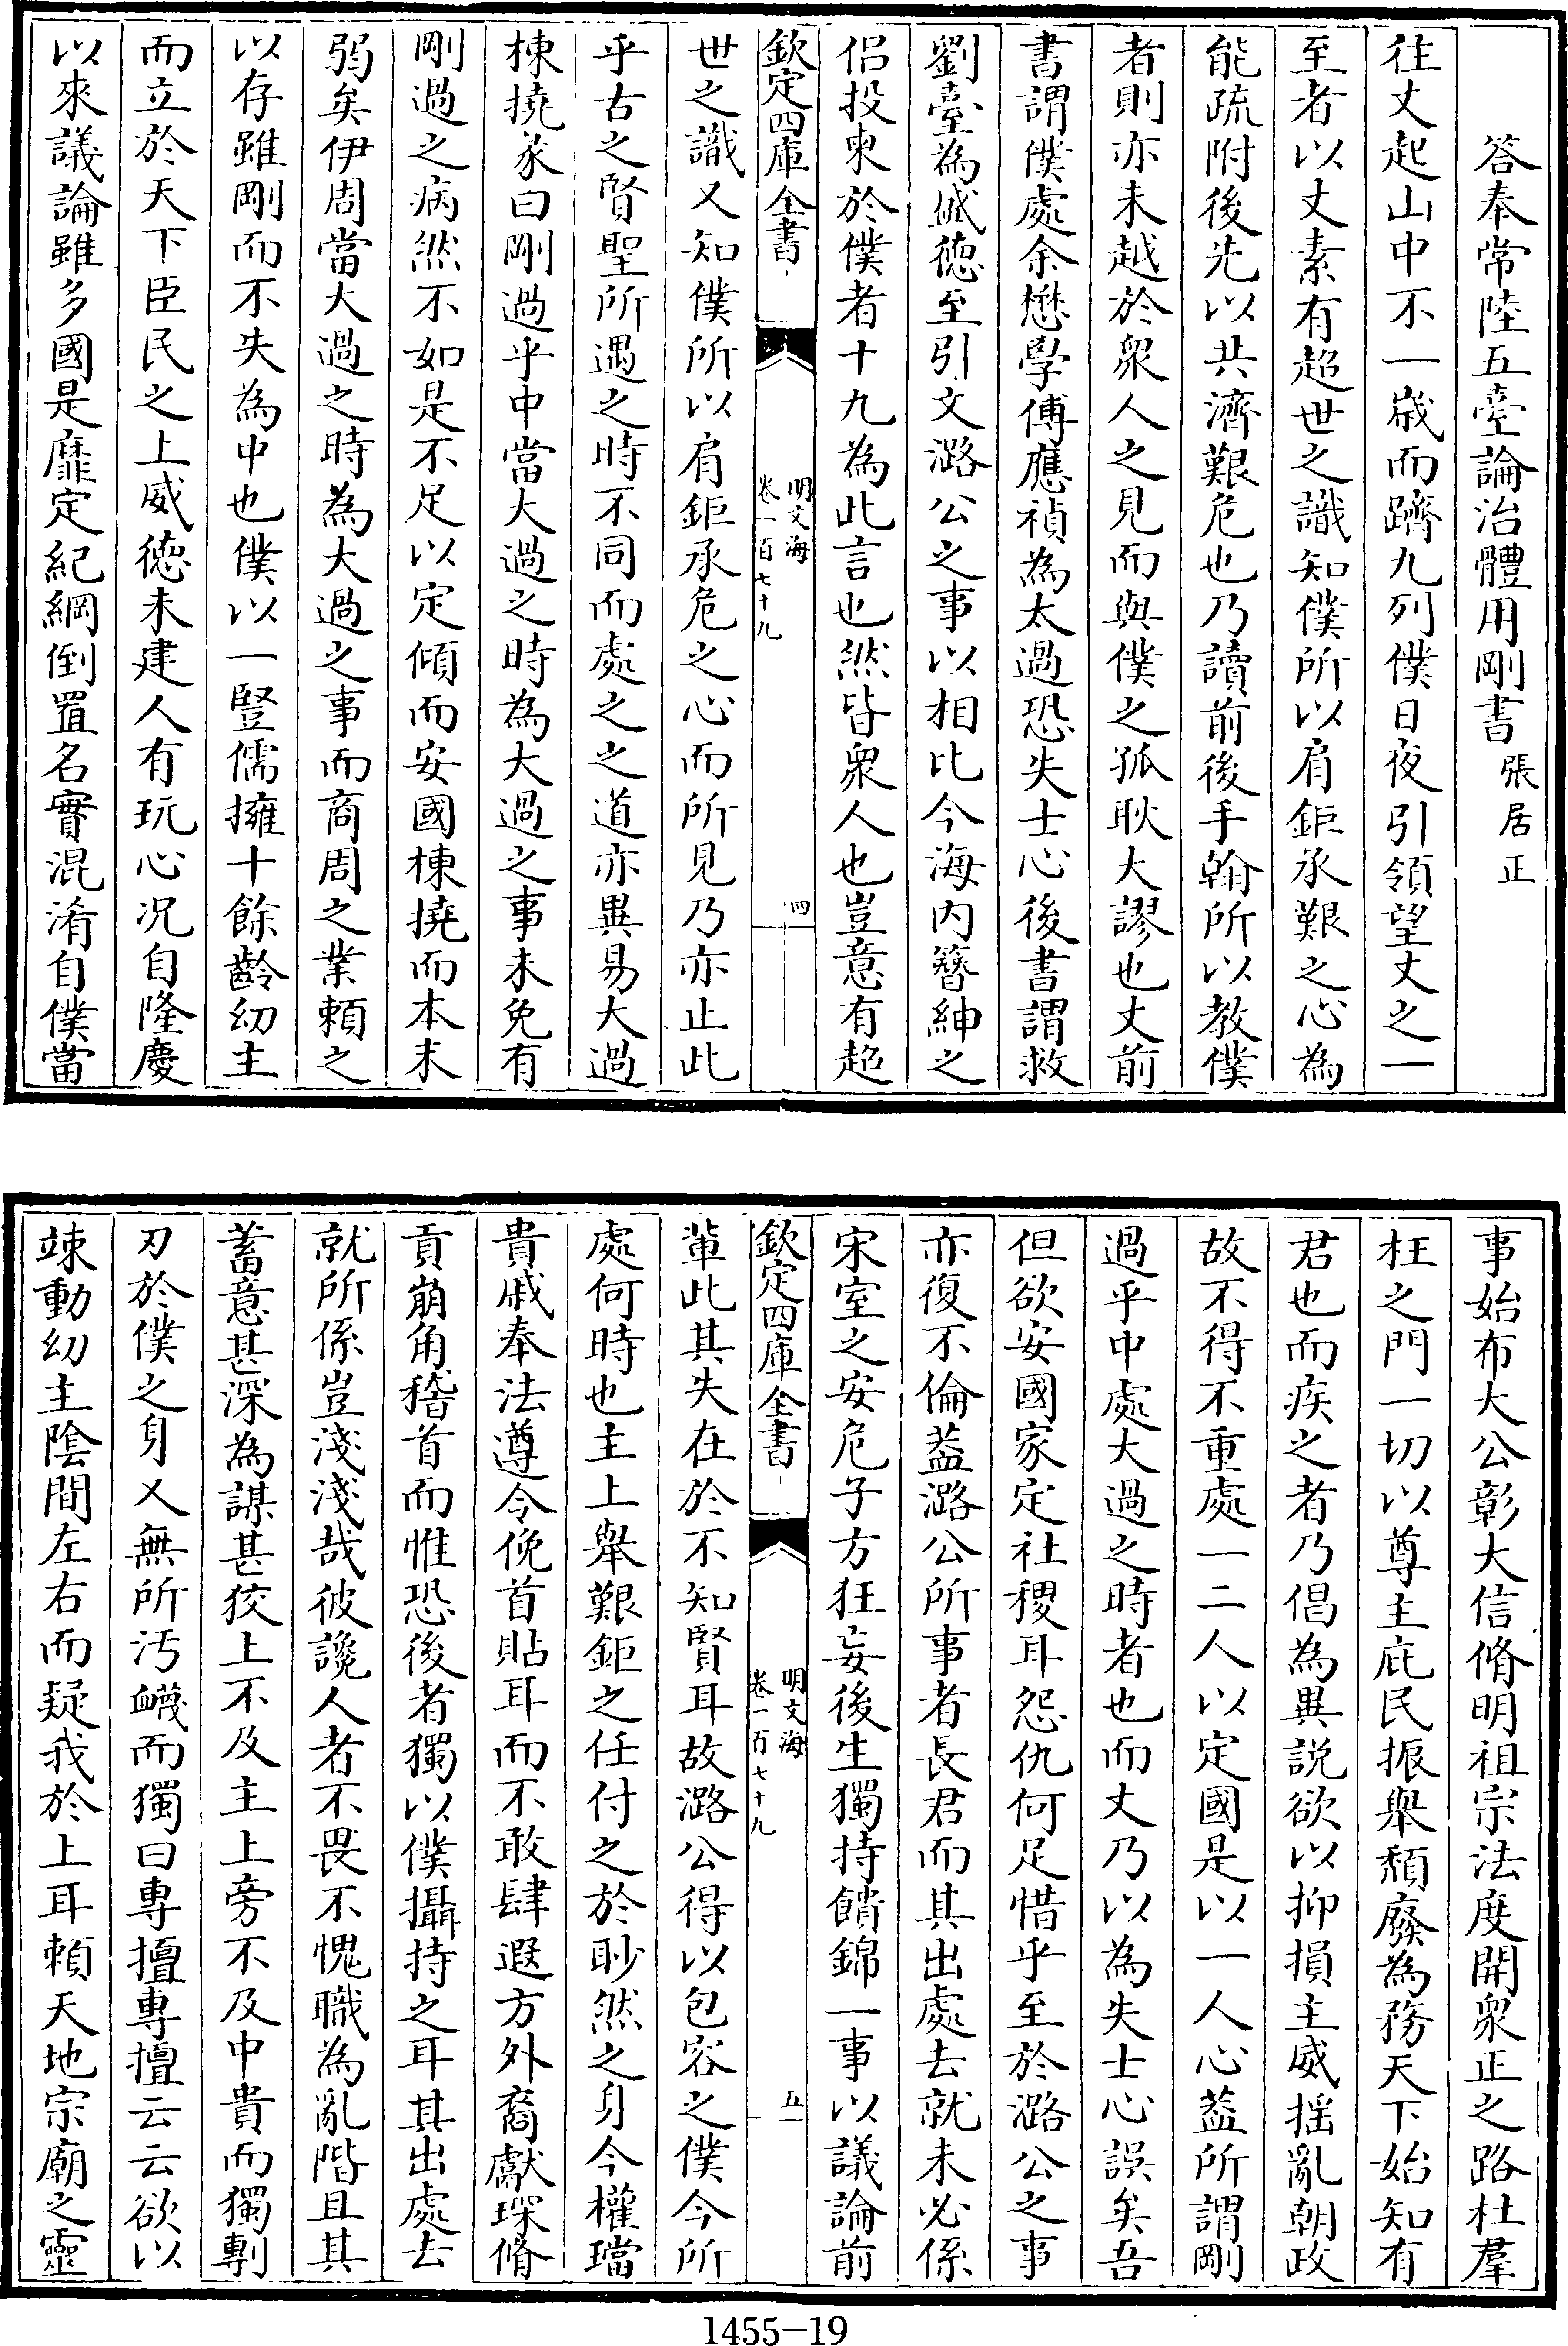 答奉常陸五臺論治體用剛書　張居正
往丈起山中不一嵗而躋九列僕日夜引領望丈之一
至者以丈素有超世之識知僕所以肩鉅承艱之心為
能疏附後先以共濟艱危也乃讀前後手翰所以教僕
者則亦未越於衆人之見而與僕之孤耿大謬也丈前
書謂僕處余懋學傅應禎為太過恐失士心後書謂救
劉臺為盛徳至引文潞公之事以相比今海内簪紳之
侣投柬於僕者十九為此言也然皆衆人也豈意有超
欽定四庫全書
明文海
卷一百七十九
四
世之識又知僕所以肩鉅承危之心而所見乃亦止此
乎古之賢聖所遇之時不同而處之之道亦異易大過
棟撓彖曰剛過乎中當大過之時為大過之事未免有
剛過之病然不如是不足以定傾而安國棟撓而本末
弱矣伊周當大過之時為大過之事而商周之業頼之
以存雖剛而不失為中也僕以一豎儒擁十餘齡幼主
而立於天下臣民之上威徳未建人有玩心况自隆慶
以來議論雖多國是靡定紀綱倒置名實混淆自僕當
事始布大公彰大信脩明祖宗法度開衆正之路杜羣
枉之門一切以尊主庇民振舉頽廢為務天下始知有
君也而疾之者乃倡為異説欲以抑損主威揺亂朝政
故不得不重處一二人以定國是以一人心葢所謂剛
過乎中處大過之時者也而丈乃以為失士心誤矣吾
但欲安國家定社稷耳怨仇何足惜乎至於潞公之事
亦復不倫葢潞公所事者長君而其出處去就未必係
宋室之安危子方狂妄後生獨持饋錦一事以議論前
欽定四庫全書
明文海
卷一百七十九
五
輩此其失在於不知賢耳故潞公得以包容之僕今所
處何時也主上舉艱鉅之任付之於眇然之身今權璫
貴戚奉法遵令俛首貼耳而不敢肆遐方外裔獻琛脩
貢崩角稽首而惟恐後者獨以僕攝持之耳其出處去
就所係豈淺淺哉彼讒人者不畏不愧職為亂階且其
蓄意甚深為謀甚狡上不及主上旁不及中貴而獨剚
刃於僕之身又無所汚衊而獨曰專擅專擅云云欲以
竦動幼主隂間左右而疑我於上耳頼天地宗廟之靈
1455-19